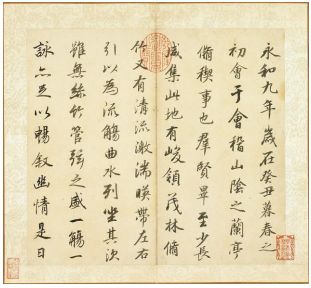 永和九年歲在癸丑暮春之
初會于會稽山陰之蘭亭
脩稧事也羣賢畢至少長
咸集此地有峻領茂林脩
竹又有清流激湍暎帶左右
引以為流觴曲水列坐其次
雖無絲竹管弦之盛一觴一
詠亦足以暢叙幽情是日